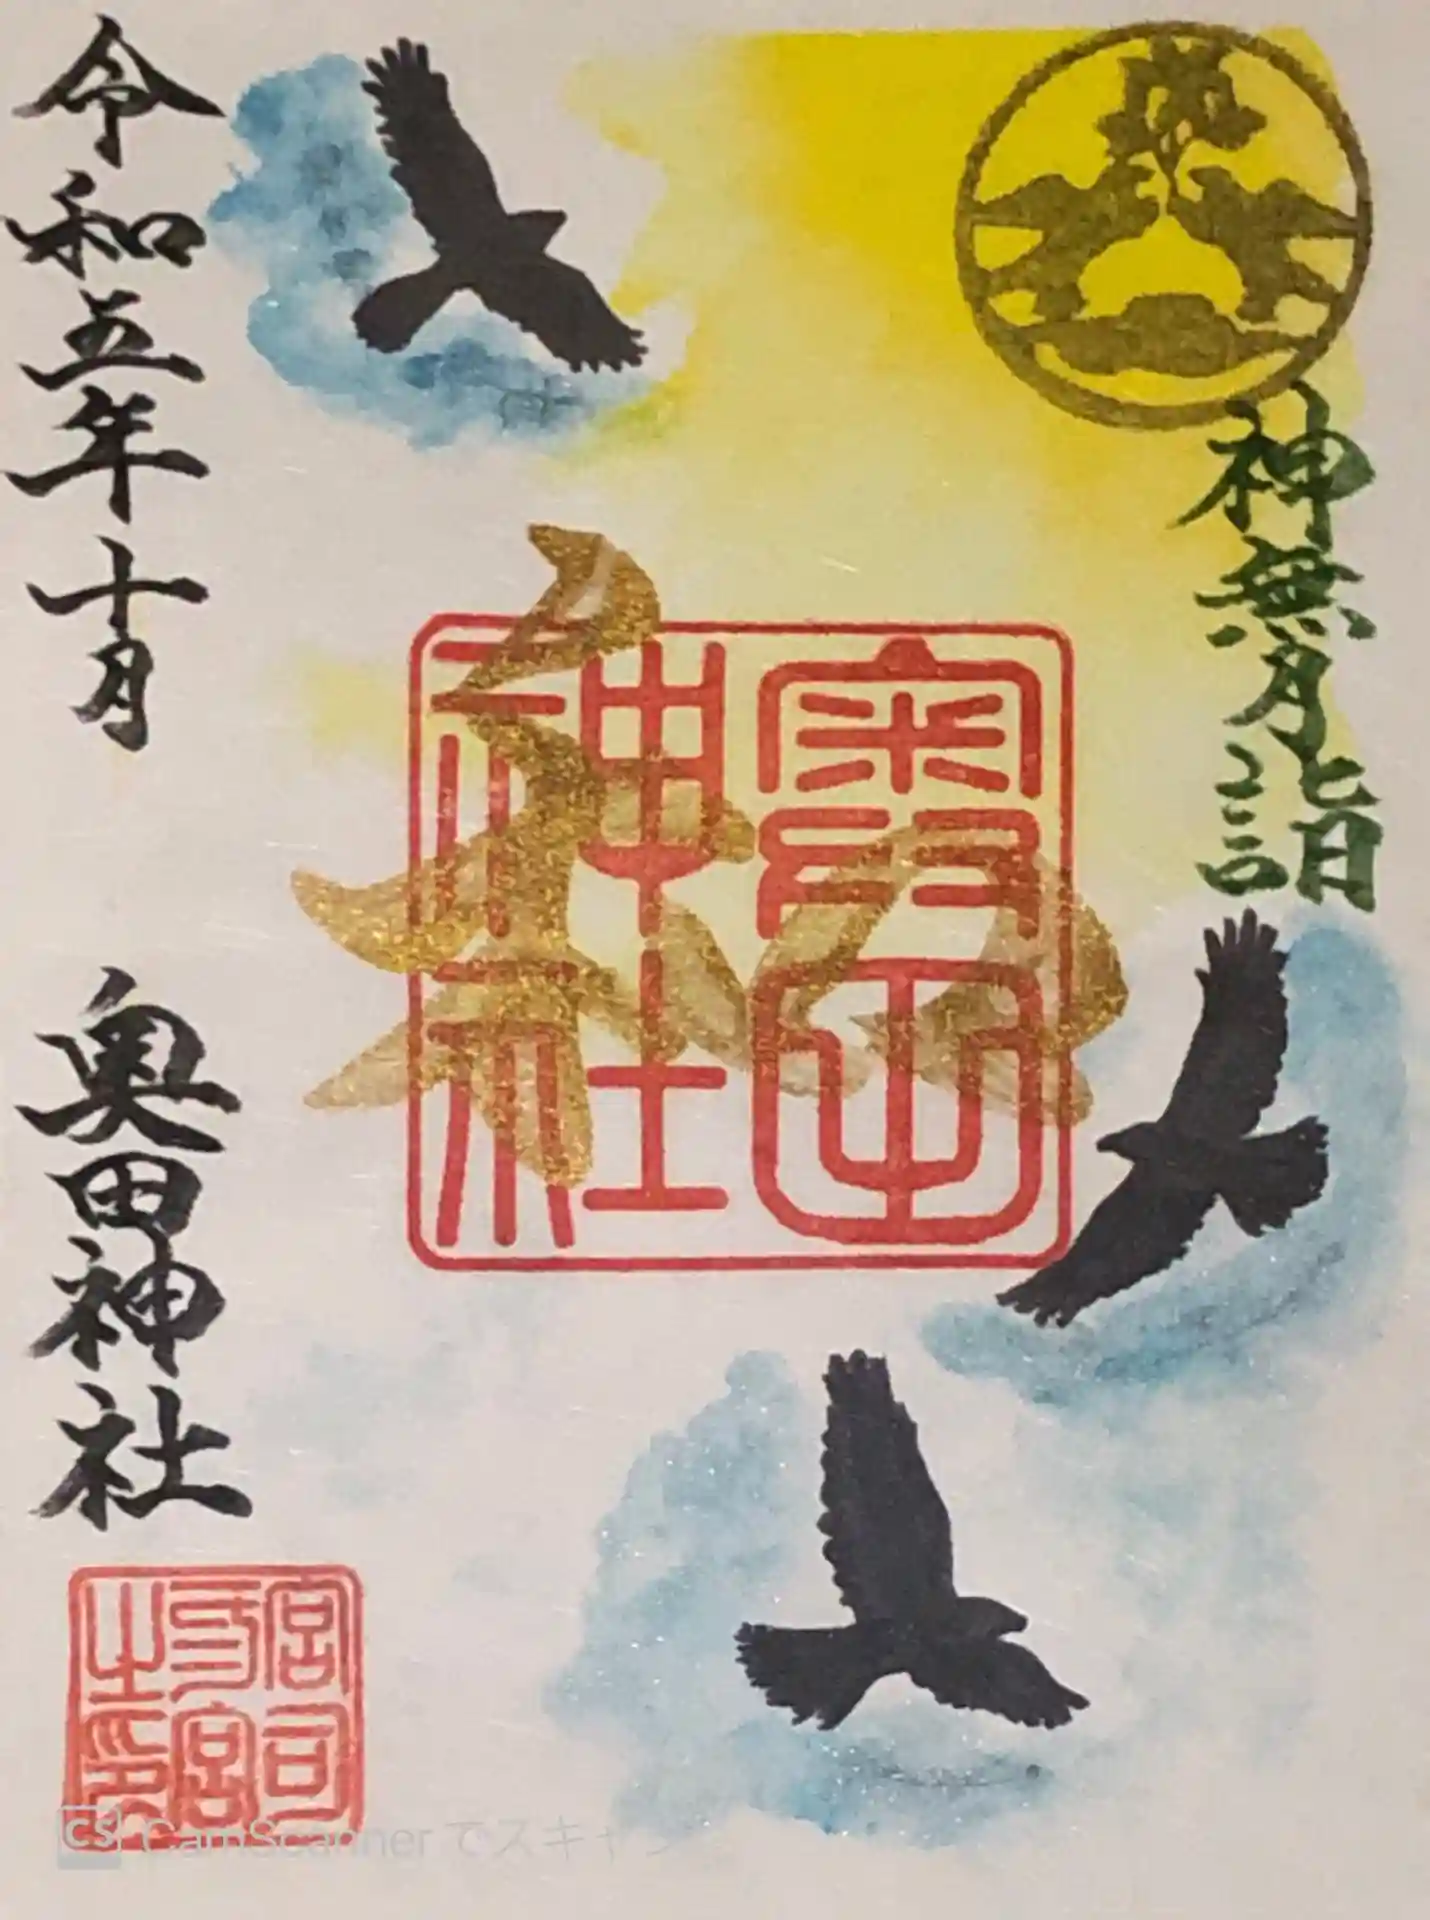 神無月詣
秋
霞山
神社
令和五年十月
奥田神社
宮司
之印
CamScanner でスキャン